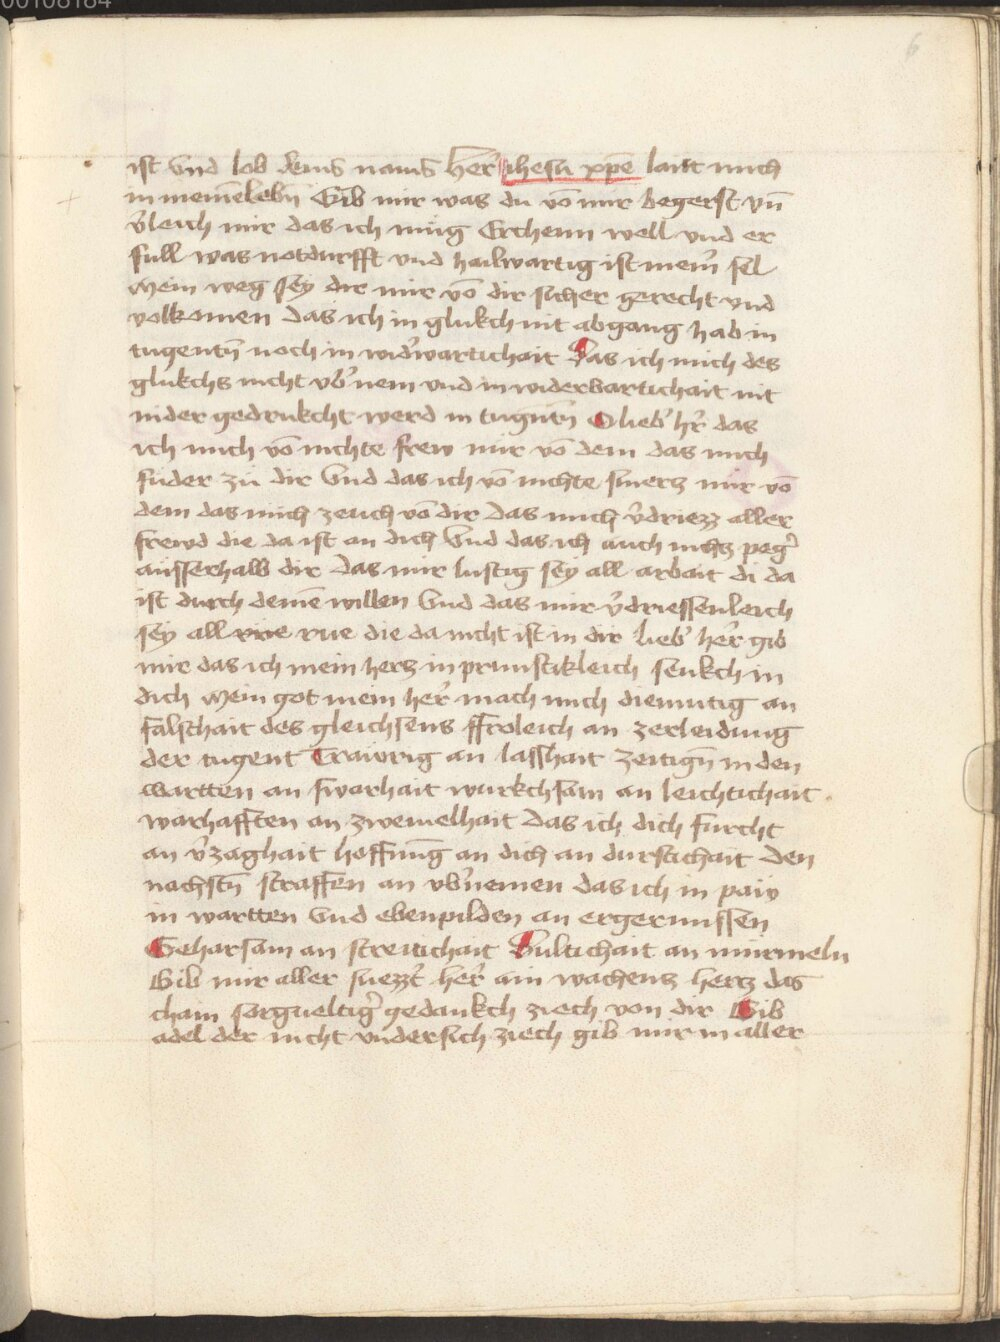 00108184
6
ist vnd lob deins namS her' ihesu xp̄e laitt mich
in meinē lebn̄ Gib mir was du vō mir begerst vn̄
v̓leich mir das ich mug Erchenn well vnd er
full was notdurfft vnd hailwartig ist mein̄ sel
mein weg sey dir mir vō dir sicher gerecht vnd
volkomen das ich in glukch nit abgang hab in
tugentn̄ noch in wid'wartichait Das ich mich des
glukchs nicht vb'nem vnd in widerbartichait nit
nider gedrukcht werd in tugn̄tn̄ O lieb' h'r das
ich mich vō nichte frew mir vō dem das mich
fuder zu dir Vnd das ich vō nichte smercz mir vō
dem das mich zeuch vō dir Das mich v̓driezz aller
frewd die da ist an dich Vnd das ich auch nichcz peg'
ausserhalb dir Das mir lustig sey all arbait di da
ist durch deinē willen Vnd das mir v̓driessenleich
sey all rue die da nicht ist in dir lieb' her' gib
mir das ich mein hercz inprunstikleich senkch in
dich mein got mein her' mach mich diemutig an
falschait des gleichsens ffroleich an zerleidung
der tugent Trawrig an lasshait zeitign̄ in den
wartten an swarhait wurkchsam an leichtichait
warhafften an zweiuelhait Das ich dich furcht
an v̓zaghait hoffnūg an dich an durstichait Den
nachstn̄ straffen an vb'nemen das ich in paw
in wartten vnd ebenpilden an ergernussen
Gehorsam an streitichait Dultichait an murmeln
Gib mir aller suezzt' her' ain wachens hercz das
chain sorgueltig' gedankch ziech von dir Gib
adel der nicht vndersich ziech gib mir in aller